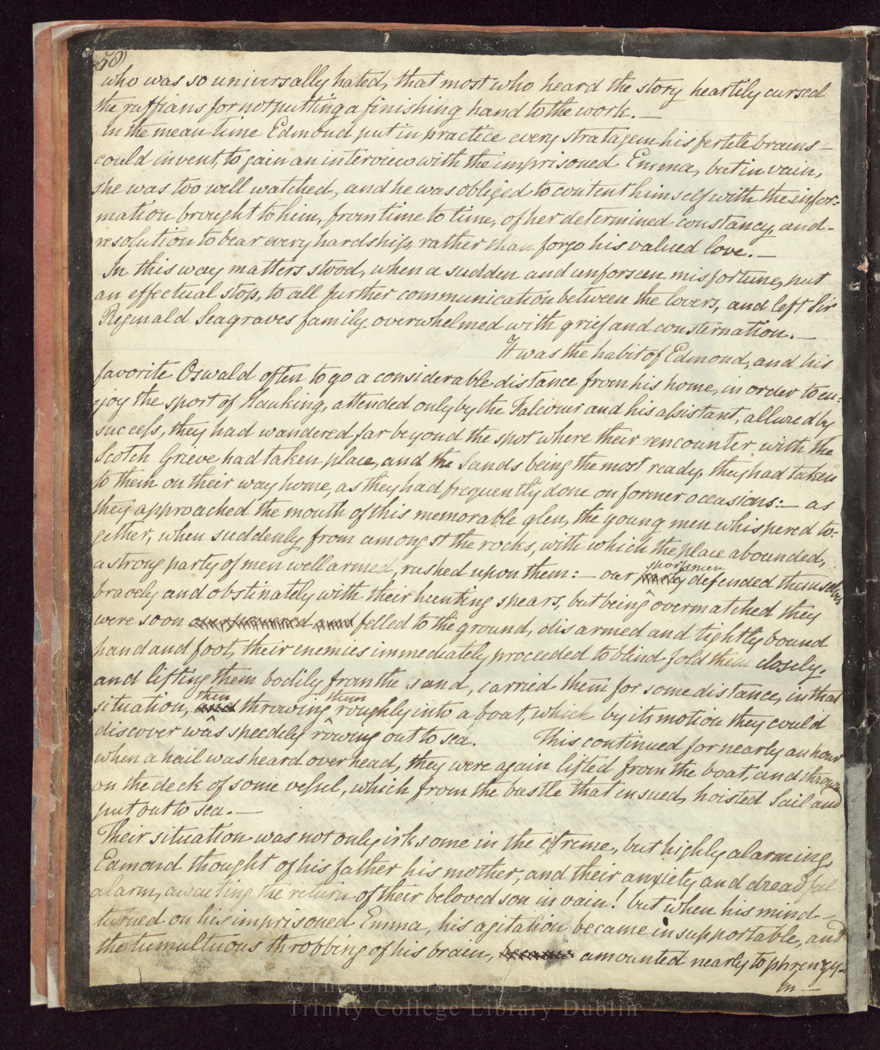 50)
who was so universally hated, that most who heard the story heartily cursed
the ruffians for not putting a finishing hand to the work. —
In the mean time Edmond put in practice every stratagem his fertile brains —
could invent, to gain an interview with the imprisoned Emma, but in vain,
she was too well watched, and he was obliged to content himself with the infor-
mation brought to him, from time to time, of her determined constancy, and -
resolution to bear every hardship, rather than forgo his valued love. —
In this way matters stood, when a sudden and unforseen misfortune, put
an effectual stop, to all further communication between the lovers, and left Sir
Reginald Seagraves family overwhelmed with grief and consternation. —
It was the habit of Edmond, and his
favorite Oswald often to go a considerable distance from his home, in order to en-
joy the sport of Hauking, attended only by the Falconer and his assistant, allured by
success, they had wandered far beyond the spot where their rencounter with the
Scotch Grieve had taken place, and the Sands being the most ready, they had taken
to them on their way home, as they had frequently done on former occasions: — as
they approached the mouth of this memorable glen, the young men whispered to-
gether, when suddenly from amongst the rocks, with which the place abounded,
a strong party of men well armed, rushed upon them: — our party sportsmen defended themselves
bravely and obstinately with their hunting spears, but being overmatched they
were soon felled to the ground, disarmed and tightly bound
hand and foot, their enemies immediately proceeded to blind fold them closely,
and lifting them bodily from the sand, carried them for some distance, in that
situation, and then throwing them roughly into a boat, which by its motion they could
discover was speedily rowing out to sea. This continued for nearly an hour
when a hail was heard over head, they were again lifted from the boat, and thrown
on the deck of some vessel, which from the bustle that insued, hoisted Sail and
put out to sea. —
Their situation was not only irksome in the extreme, but highly alarming,
Edmond thought of his father his mother, and their anxiety and dreadful
alarm, awaiting the return of their beloved son in vain! but when his mind —
turned on his imprisoned Emma, his agitation became insupportable, and
the tumultuous throbbing of his brain, became amounted nearly to phrenzy -
In —
©The University of Dublin
Trinity College Library Dublin